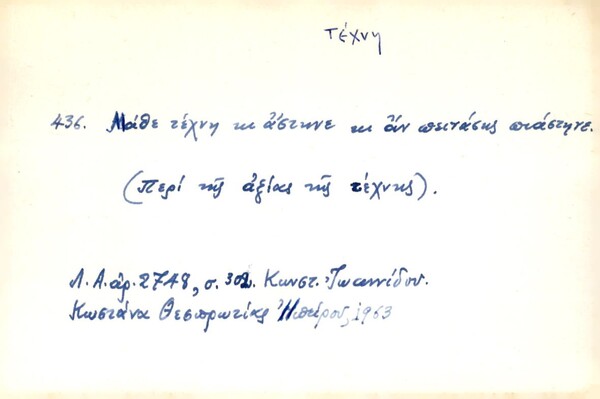 τέχνη
436. Μάθε τέχνη κι ἄστηνε κι ἄν πεινάσης πιάστηνε.
(Περί τῆς ἀξίας τῆς τέχνης).
Λ.Α. ἀρ. 2748, σ. 302. Κωνστ. Ἰωαννίδου.
Κωστάνα Θεσπρωτίας Ἠπείρου, 1963